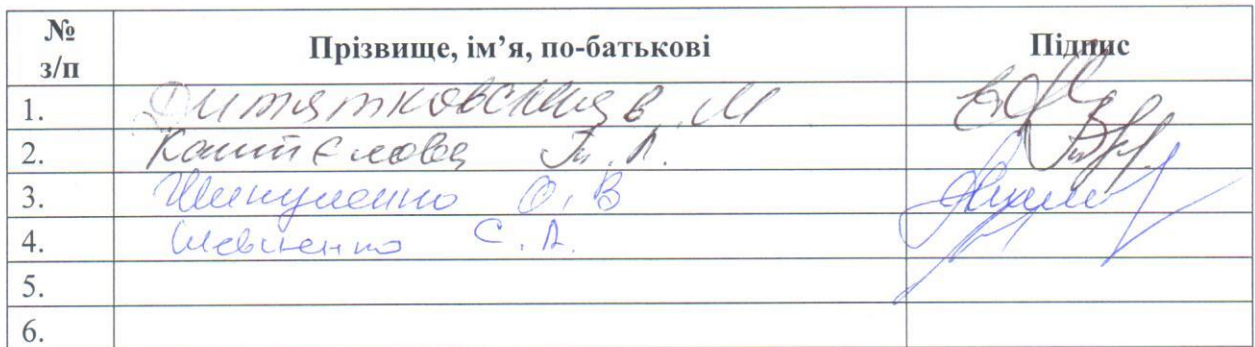 № з/п Прізвище, ім’я, по-батькові Підпис
1. Дитятковская В. М
2. Каштєлова Т. Л.
3. О. В
4. Шевченко С. А.
5.
6.